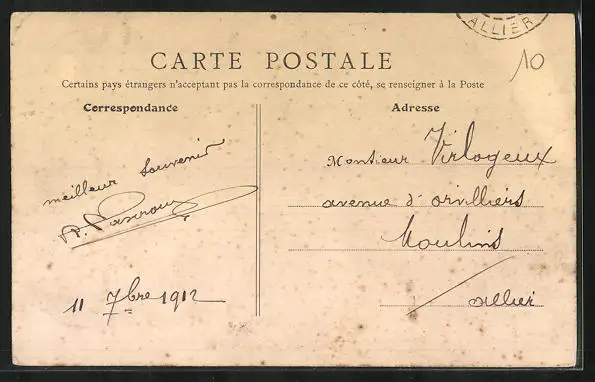 ALLIER
10
CARTE POSTALE
Certains pays étrangers n'acceptant pas la correspondance de ce côté, se renseigner à la Poste
Correspondance
Adresse
meilleur souvenir
11 7bre 1912
Monsieur Virlogeux
avenue d'orvilliers
Moulins
allier